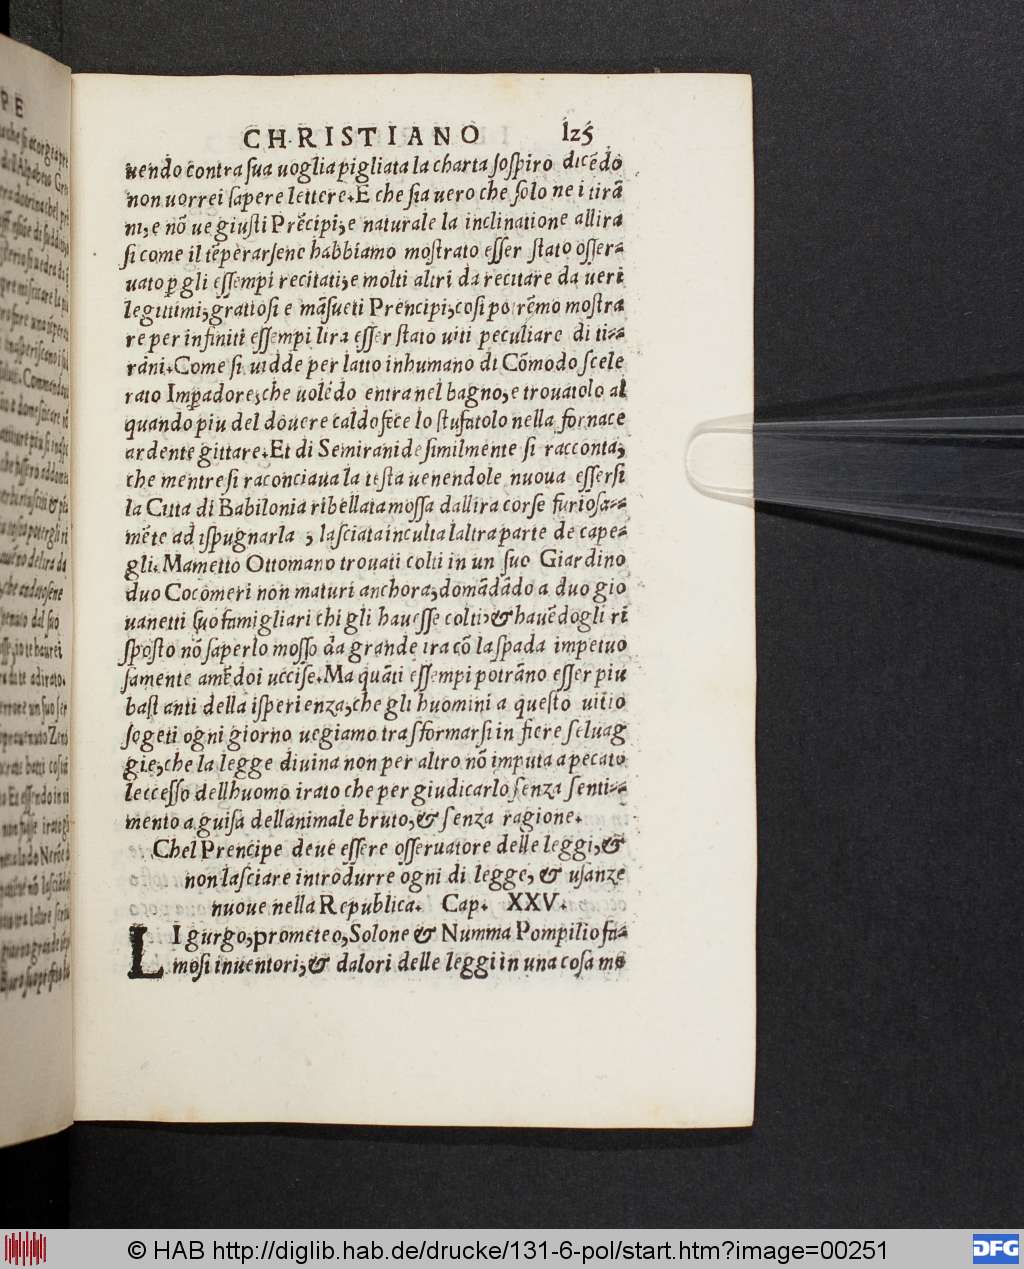 CHRISTIANO 125
uendo contra sua uoglia pigliata la charta sospiro dicēdo
non uorrei sapere lettere. E che sia uero che solo ne i tirā
ni, e nō ue giusti Prēcipi, e naturale la inclinatione allira
si come il tēperarsene habbiamo mostrato esser stato osser-
uato ꝑ gli essempi recitati, e molti altri da recitare da ueri
legittimi, gratiosi e māsueti Prencipi, cosi poi rēmo mostra
re per infiniti essempi lira esser stato uiti peculiare di ti-
rāni. Come si uidde per latto inhumano di Cōmodo scele
rato Imꝑadore, che uolēdo entra nel bagno, e trouatolo al
quando piu del douere caldo fece lo stufatolo nella fornace
ardente gittare. Et di Semiranide similmente si racconta,
che mentre si raconciaua la testa uenendole nuoua essersi
la Citta di Babilonia ribellata mossa dallira corse furiosa-
mēte ad ispugnarla , lasciata inculta laltra parte de cape-
gli. Mametto Ottomano trouati colti in un suo Giardino
duo Cocomeri non maturi anchora, domādādo a duo gio
uanetti suo famigliari chi gli hauesse colti, & hauēdogli ri
sposto nō saperlo mosso da grande ira cō la spada impetuo
samente amēdoi uccise. Ma quāti essempi potrāno esser piu
bastanti della isperienza, che gli huomini a questo uitio
sogeti ogni giorno uegiamo trasformarsi in fiere seluag
gie, che la legge diuina non per altro nō imputa a pecato
leccesso dellhuomo irato che per giudicarlo senza senti-
mento a guisa dellanimale bruto, & senza ragione.
Chel Prencipe deue essere osseruatore delle leggi, &
non lasciare introdurre ogni di legge, & usanze
nuoue nella Republica. Cap. XXV.
LIgurgo, prometeo, Solone & Numma Pompilio fa-
mosi inuentori, & dalori delle leggi in una cosa mo
© HAB http://diglib.hab.de/drucke/131-6-pol/start.htm?image=00251
DFG